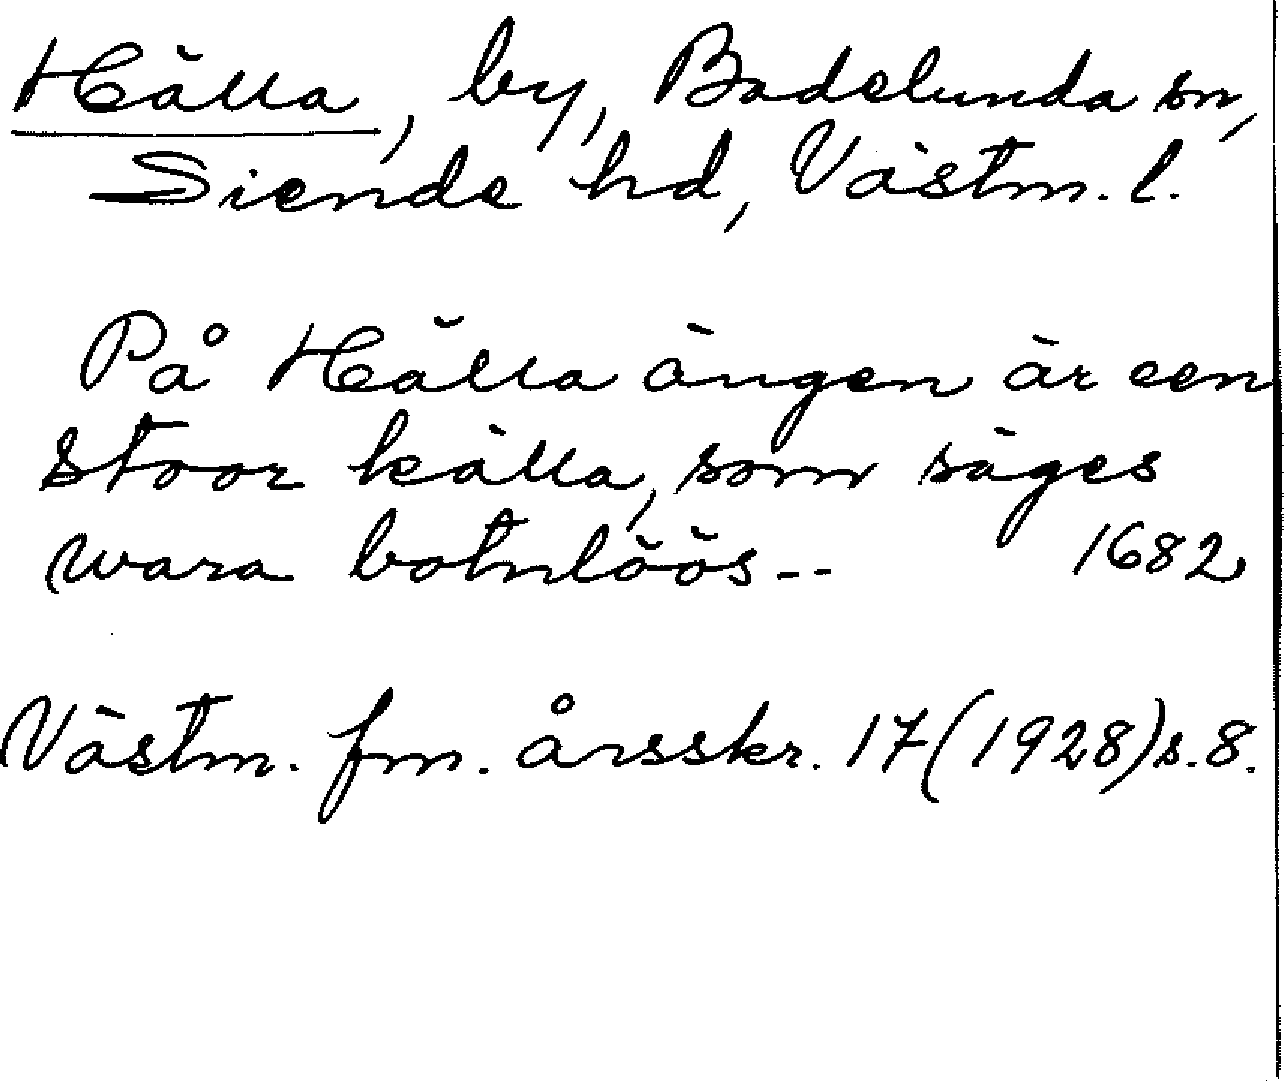 Hälla, by, Badelunda sn,
Siende hd, Västm. l.
På Hälla ängen är een
stoor källa, som säges
wara botnlöös -- 1682
Västm. fm. årsskr. 17 (1928) s. 8.